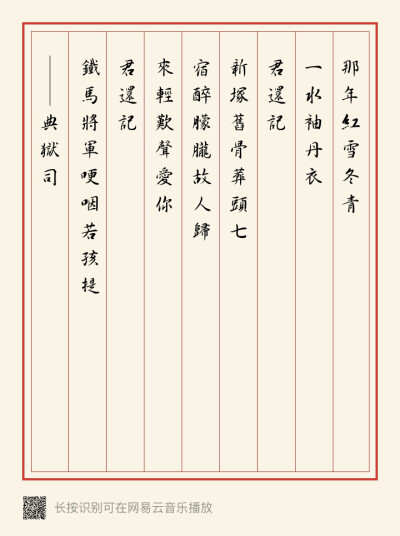 那年紅雪冬青
一水袖丹衣
君還記
新塚舊骨葬頭七
宿醉朦朧故人歸
來輕歎聲愛你
君還記
鐵馬將軍哽咽若孩提
——典獄司
长按识别可在网易云音乐播放